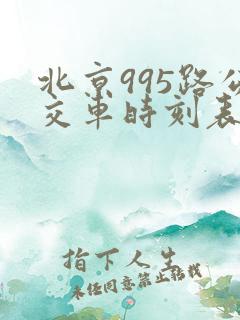 北京995路公
交车时刻表
指下人生
未经同意禁止转载